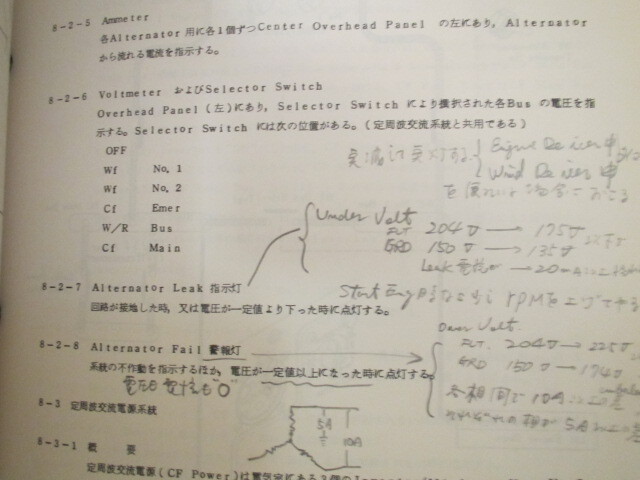 8-2-5 Ammeter
各Alternator 用に各1個ずつCenter Overhead Panel の左にあり, Alternator
から流れる電流を指示する。
8-2-6 Voltmeter およびSelector Switch
Overhead Panel (左)にあり, Selector Switch により選択された各Bus の電圧を指
示する。Selector Switch には次の位置がある。(定周波交流系統と共用である)
OFF
Wf No. 1
Wf No. 2
Cf Emer
W/R Bus
Cf Main
Engine De icer 中
Wind De icer 中
Under Volt
FLT 204V → 175V 以下
GRD 150V → 135V
Leak 電流が → 20mA 以上
8-2-7 Alternator Leak 指示灯
回路が接地した時, 又は電圧が一定値より下った時に点灯する。
Start Eng rpmを上げてやる
Over Volt
8-2-8 Alternator Fail 警報灯
FLT. 204V → 225V
系統の不作動を指示するほか, 電圧が一定値以上になった時に点灯する。
GRD 150V → 174V
各相間で 10A 以上の差
それぞれの相が 5A 以上の差
8-3 定周波交流電源系統
5A
10A
8-3-1 概 要
定周波交流電源 (CF Power) は